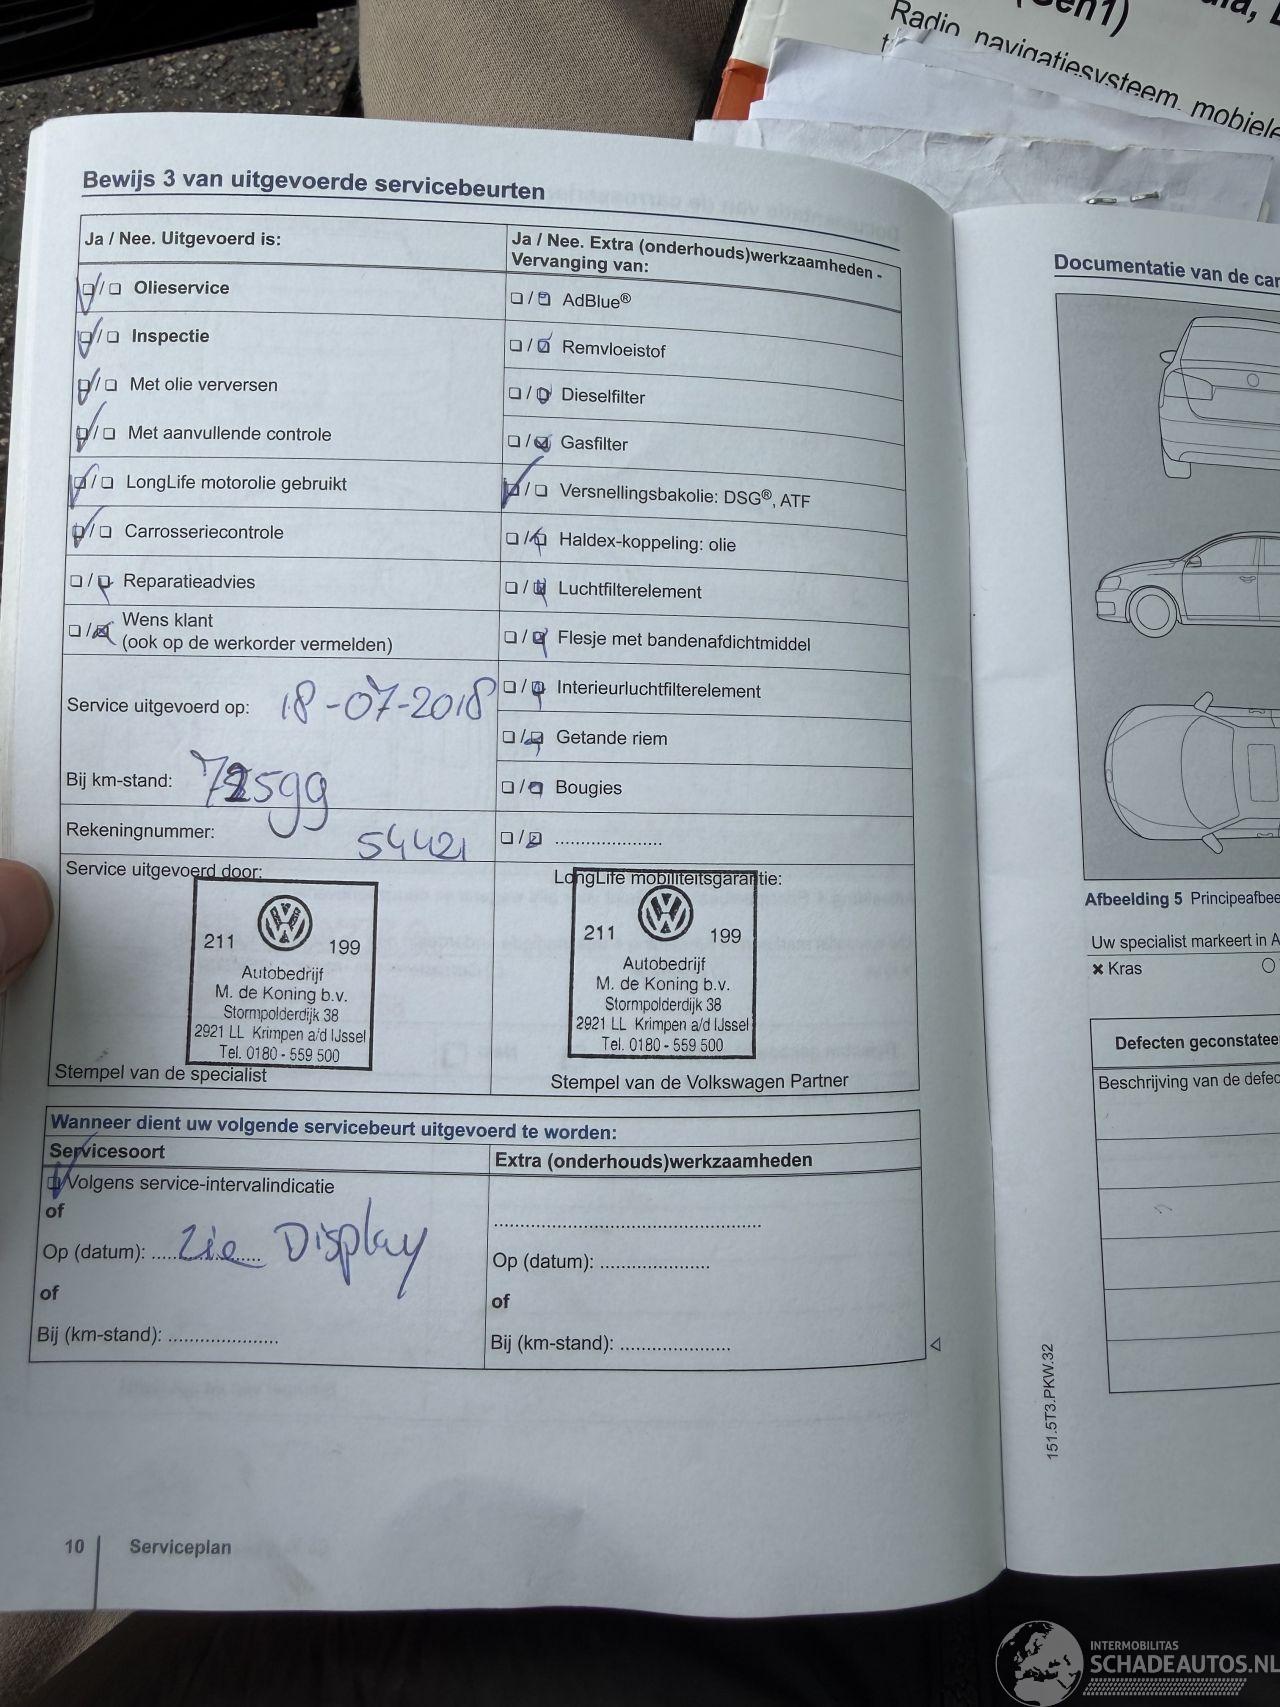 (Gen1)
Radio, navigatiesysteem, mobiele
Bewijs 3 van uitgevoerde servicebeurten
Ja / Nee. Uitgevoerd is:
Olieservice
Inspectie
Met olie verversen
Met aanvullende controle
LongLife motorolie gebruikt
Carrosseriecontrole
Reparatieadvies
Wens klant
(ook op de werkorder vermelden)
Service uitgevoerd op: 18-07-2018
Bij km-stand:
Rekeningnummer: 54421
Ja / Nee. Extra (onderhouds)werkzaamheden -
Vervanging van:
AdBlue®
Remvloeistof
Dieselfilter
Gasfilter
Versnellingsbakolie: DSG®, ATF
Haldex-koppeling: olie
Luchtfilterelement
Flesje met bandenafdichtmiddel
Interieurluchtfilterelement
Getande riem
Bougies
.....................
Service uitgevoerd door:
211 199
Autobedrijf
M. de Koning b.v.
Stormpolderdijk 38
2921 LL Krimpen a/d IJssel
Tel. 0180 - 559 500
Stempel van de specialist
LongLife mobiliteitsgarantie:
211 199
Autobedrijf
M. de Koning b.v.
Stormpolderdijk 38
2921 LL Krimpen a/d IJssel
Tel. 0180 - 559 500
Stempel van de Volkswagen Partner
Wanneer dient uw volgende servicebeurt uitgevoerd te worden:
Servicesoort
Volgens service-intervalindicatie
of
Op (datum): ..................... zie Display
of
Bij (km-stand): .....................
Extra (onderhouds)werkzaamheden
...................................................
Op (datum): .....................
of
Bij (km-stand): .....................
10 Serviceplan
Documentatie van de car
Afbeelding 5 Principeafbee
Uw specialist markeert in A
× Kras
Defecten geconstatee
Beschrijving van de defec
151.5T3.PKW.32
INTERMOBILITAS
SCHADEAUTOS.NL